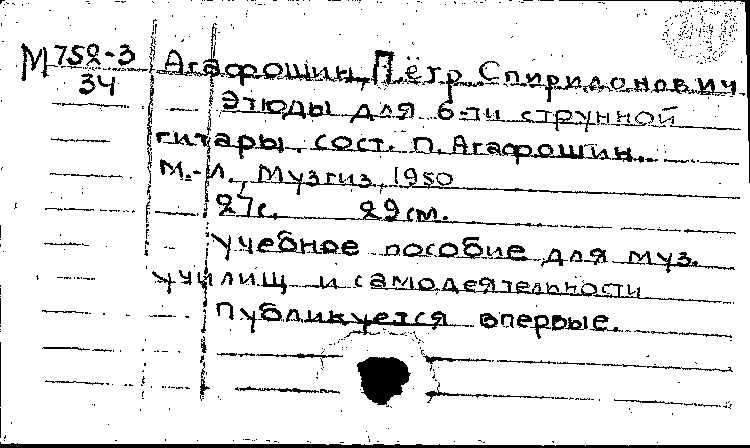 М 752-3
34
Агафошин, Пётр Спиридонович
Этюды для 6-ти струнной
гитары. сост. П. Агафошин.
М.-Л., Музгиз, 1950
27с. 29см.
Учебное пособие для муз.
училищ и самодеятельности
Публикуется впервые.